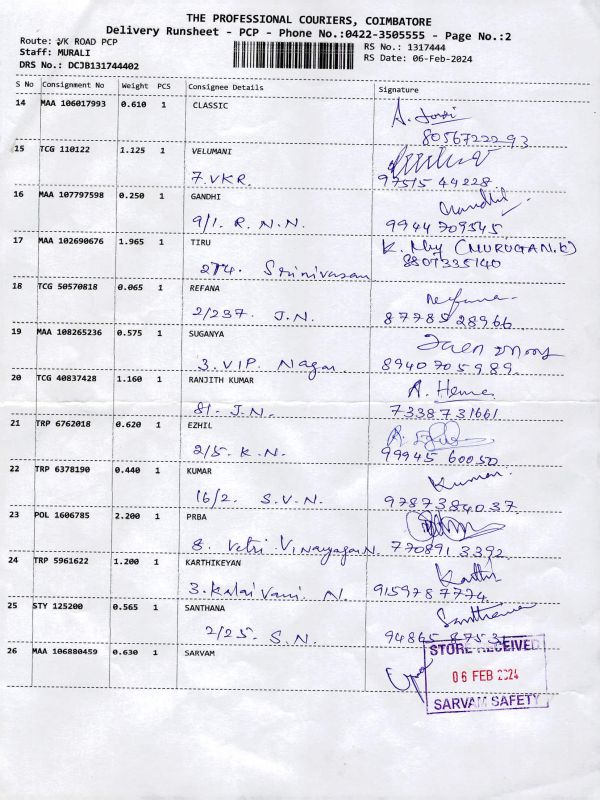 THE PROFESSIONAL COURIERS, COIMBATORE
Delivery Runsheet - PCP - Phone No.:0422-3505555 - Page No.:2
Route: VK ROAD PCP
Staff: MURALI
DRS No.: DCJB131744402
RS No.: 1317444
RS Date: 06-Feb-2024
S No Consignment No Weight PCS Consignee Details Signature
14 MAA 106017993 0.610 1 CLASSIC
8056722293
15 TCG 110122 1.125 1 VELUMANI
7. VKR. 97515 44228
16 MAA 107797598 0.250 1 GANDHI
9/1. R.N.N. 9944709545
17 MAA 102690676 1.965 1 TIRU K. (MURUGAN.K)
274. Srinivasan 8807335140
18 TCG 50570818 0.065 1 REFANA Refana
2/237. J.N. 87785 28966
19 MAA 108265236 0.575 1 SUGANYA
3. VIP. Nagar. 8940705989
20 TCG 40837428 1.160 1 RANJITH KUMAR A. Hema
81. J.N. 7338731661
21 TRP 6762018 0.620 1 EZHIL
2/5. K.N. 99945 60050
22 TRP 6378190 0.440 1 KUMAR Kumar.
16/2. S.V.N. 9787384037
23 POL 1606785 2.200 1 PRBA
8. Vetri Vinayagan. 7708913392
24 TRP 5961622 1.200 1 KARTHIKEYAN Karthi
3. Kalaivani N. 9159787774
25 STY 125200 0.565 1 SANTHANA Santhana
2/25. S.N. 94865 8753
26 MAA 106880459 0.630 1 SARVAM
STORE RECEIVED
06 FEB 2024
SARVAM SAFETY